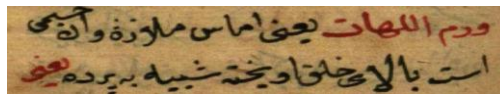 ورم اللهات یعنی اماس ملازة وآن جسمی
است بالاء خلق اویخته شبیه به پرده یعنی